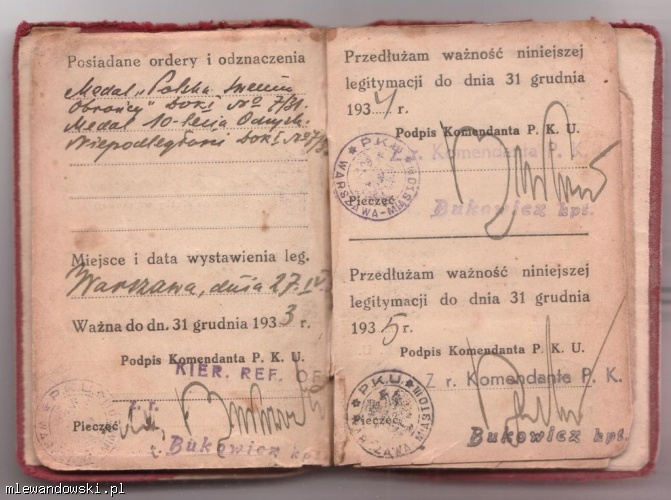 Posiadane ordery i odznaczenia
Medal „Polska Swemu
Obrońcy" DOK I No 7/31.
Medal 10-lecia Odzysk.
Niepodległości DOK I No 97/3
Miejsce i data wystawienia leg.
Warszawa, dnia 27. IV
Ważna do dn. 31 grudnia 1933 r.
Podpis Komendanta P. K. U.
KIER. REF. O5
z r.
Pieczęć
Bukowicz kpt.
P.K.U.
Przedłużam ważność niniejszej
legitymacji do dnia 31 grudnia
1934 r.
Podpis Komendanta P. K. U.
Z r. Komendanta P. K.
P.K.U. WARSZAWA-MIASTO III
Pieczęć
Bukowicz kpt.
Przedłużam ważność niniejszej
legitymacji do dnia 31 grudnia
1935 r.
Podpis Komendanta P. K. U.
Z r. Komendanta P. K.
P.K.U. WARSZAWA MIASTO III
Pieczęć
Bukowicz kpt.
mlewandowski.pl